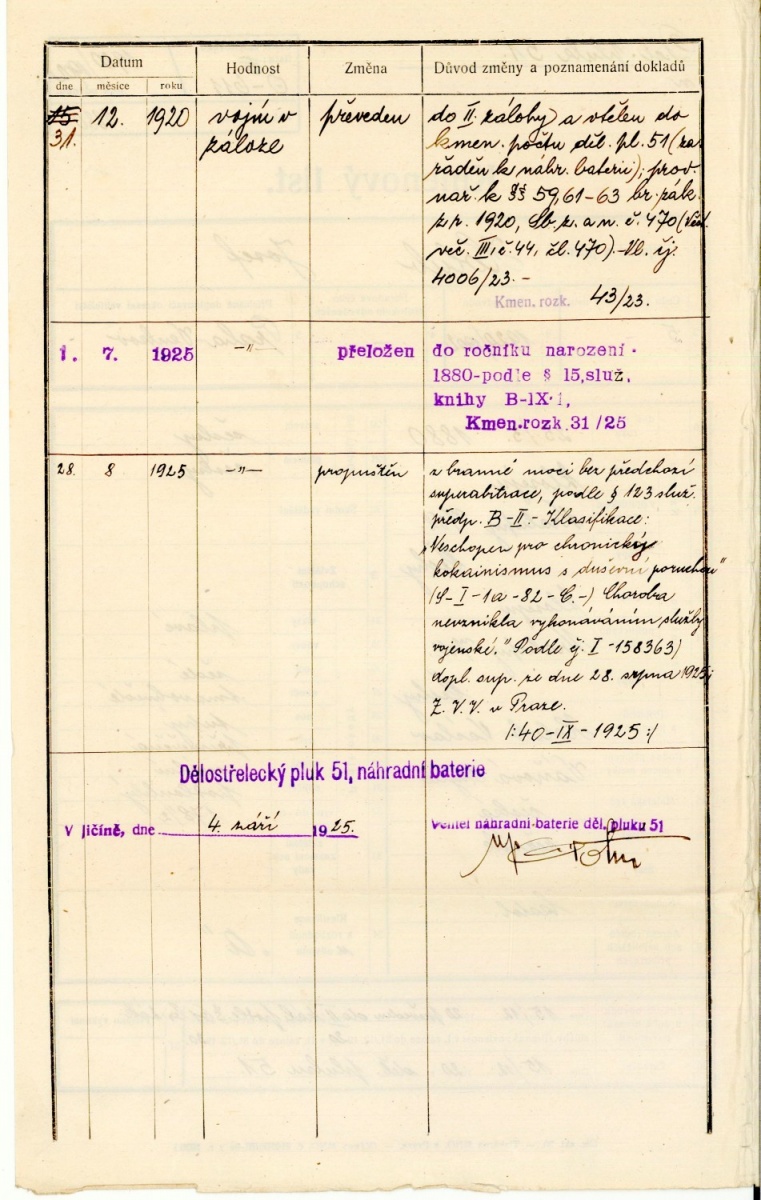 Datum
Hodnost
Změna
Důvod změny a poznamenání dokladů
dne měsíce roku
15 12. 1920 vojín v převeden do II. zálohy) a vtělen do
31. záloze kmen. počtu děl. pl. 51 (za-
řaděn k náhr. baterii); prov.
nař. k §§ 59, 61-63 br. zák.
z r. 1920, Sb. z. a n. č. 470 (Věst.
věc. III, č. 44, čl. 470).-Vl. čj.
4006/23.-
Kmen. rozk. 43/23.
1. 7. 1925 -"- přeložen do ročníku narození
1880-podle § 15, služ.
knihy B-IX-1,
Kmen. rozk. 31/25
28. 8 1925 -"- propuštěn z branné moci bez předchozí
superabitrace, podle § 123 služ.
předp. B-II.- Klasifikace:
„Neschopen pro chronický
kokainismus s duševní poruchou"
(S-I-1a-82-C.-) Choroba
nevznikla vykonáváním služby
vojenské." Podle čj. I-158363)
dopl. sup. ze dne 28. srpna 1925;
Z. V. V. v Praze.
/:40-IX-1925:/
Dělostřelecký pluk 51, náhradní baterie
V Jičíně, dne 4. září 1925.
Velitel náhradní baterie děl. pluku 51